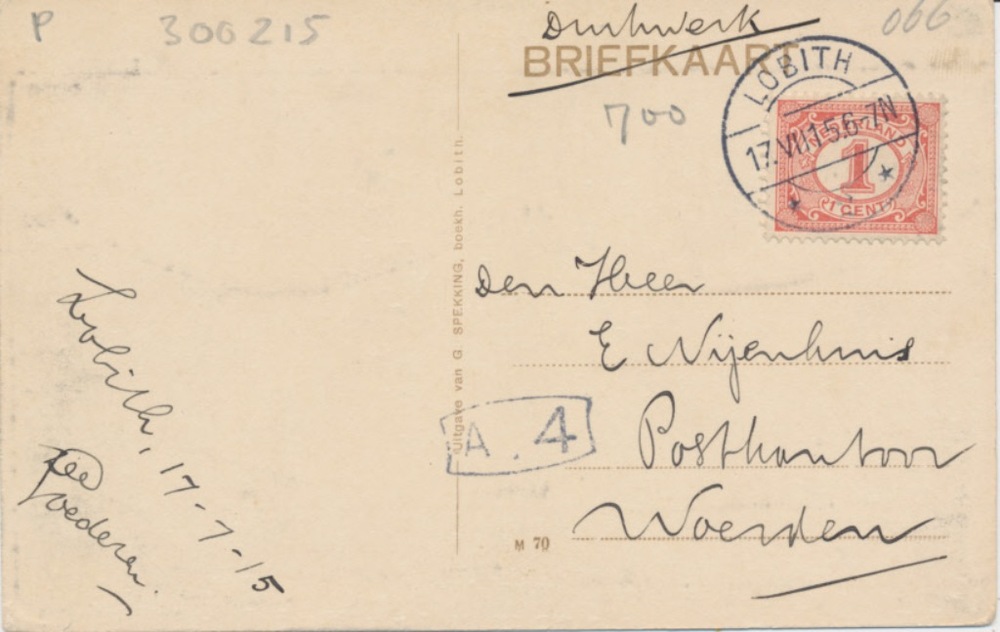 P 300215
Drukwerk
066
BRIEFKAART
700
LOBITH
17.VII.15.6-7N
NEDERLAND
1
1 CENT
Uitgave van G SPEKKING, boekh. Lobith.
Den Heer
E Nijenhuis
Postkantoor
Woerden
A. 4
M 70
Lobith, 17-7-15